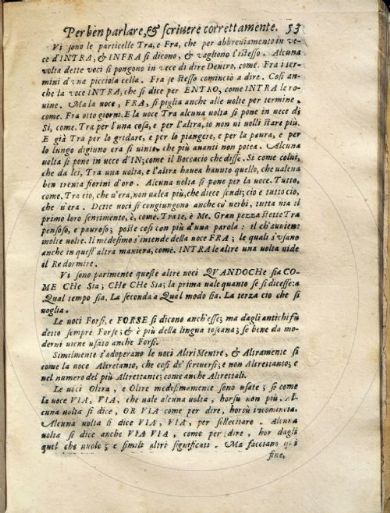 Per ben parlare, & scriuere correttamente. 53
Vi sono le particelle Tra, e Fra, che per abbreuiamento in ve
ce d'INTRA, & INFRA si dicono, & vagliono l'istesso. Alcuna
volta dette voci si pongono in vece di dire Dentro, come. Fra i ter-
mini d'vna picciola cella. Fra se stesso cominciò a dire. Così an-
che la voce INTRA, che si dice per ENTRO, come INTRA le ro-
uine. Ma la uoce, FRA, si piglia anche alle uolte per termine.
come. Fra otto giorni. E la uoce Tra alcuna uolta si pone in uece di
Sì, come, Tra per l'una cosa, e per l'altra, io non ui uolli stare più.
E già Tra per lo gridare, e per lo piangere, e per la paura, e per
lo lungo digiuno era sì uinto, che più auanti non potea. Alcuna
uolta si pone in uece d'IN; come il Boccacio che disse. Sì come colui,
che da lei, Tra una uolta, e l'altra hauea hauuto quello, che ualeua
ben trenta fiorini d'oro. Alcuna uolta si pone per la uoce. Tutto,
come, Tra ciò, che u'era, non ualea più, che diece scudi; cio e tutto ciò,
che u'era. Dette uoci si congiungono anche co' uerbi, tutta uia il
primo loro sentimento, è, come, Trate, è Me. Gran pezza stette Tra
pensoso, e pauroso; poste così con più d'una parola: il ch'auuiene
molte uolte. Il medesimo s'intende della uoce FRA; le quali s'usano
anche in quest'altra maniera, come. INTRA le altre una uolta uide
il Re dormire.
Vi sono parimente queste altre uoci QVANDOCHE sia CO-
ME CHE Sia; CHE CHE Sia; la prima uale quanto se si dicesse: a
Qual tempo sia. La seconda a Qual modo sia. La terza cio che si
uoglia.
Le uoci Forsi, e FORSE si dicono anch'esse; ma dagli antichi fù
detto sempre Forse; & è più della lingua toscana; se bene da mo-
derni uiene usato anche Forsi.
Similmente s'adoperano le uoci Altri Mentre, & Altramente si
come la uoce Altretanto, che così de' scriuersi; e non Altrettanto; e
nel numero del più Altrettante; come anche Altrettali.
Le uoci Oltra, e Oltre medesimamente sono usate; sì come
la uoce VIA, VIA, che uale alcuna uolta, horsù non più. Al-
cuna uolta si dice, OR VIA come per dire, horsù incomincia.
Alcuna uolta si dice VIA, VIA, per sollecitare. Alcuna
uolta si dice anche VIA VIA, come per dire, hor dagli
quel che uuole; e simili altri significati. Ma facciano qui
fine,